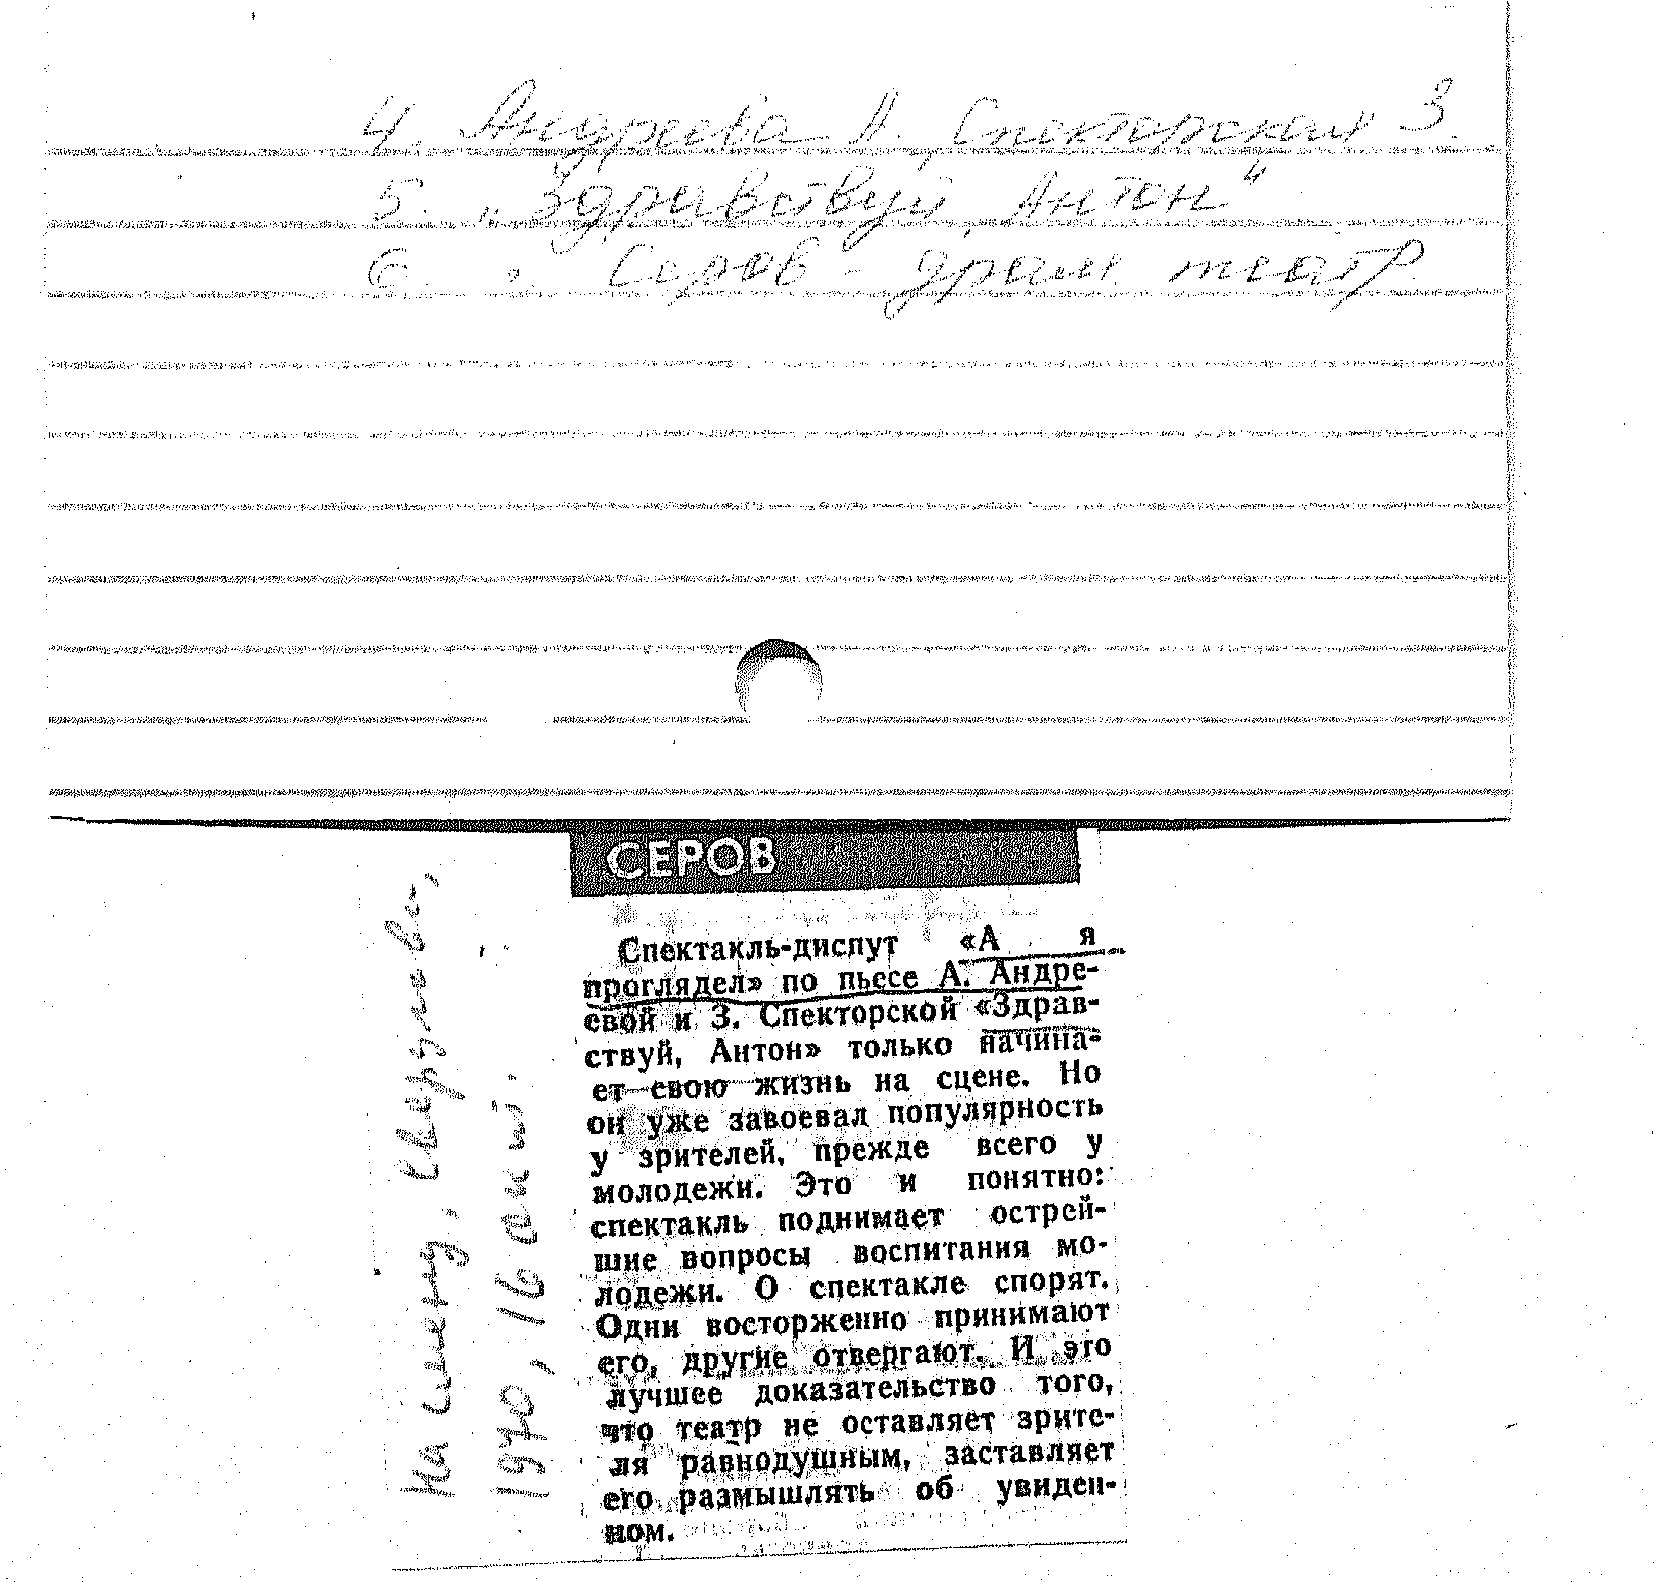 4. Андреева А. Спекторская З.
5. „Здравствуй, Антон"
6. Серов - драм. театр
СЕРОВ
Спектакль-диспут «А я
проглядел» по пьесе А. Андре-
евой и З. Спекторской «Здрав-
ствуй, Антон» только начина-
ет свою жизнь на сцене. Но
он уже завоевал популярность
у зрителей, прежде всего у
молодежи. Это и понятно:
спектакль поднимает острей-
шие вопросы воспитания мо-
лодежи. О спектакле спорят.
Одни восторженно принимают
его, другие отвергают. И это
лучшее доказательство того,
что театр не оставляет зрите-
ля равнодушным, заставляет
его размышлять об увиден-
ном.
на смену, Свердловск,
1970, 16 окт.